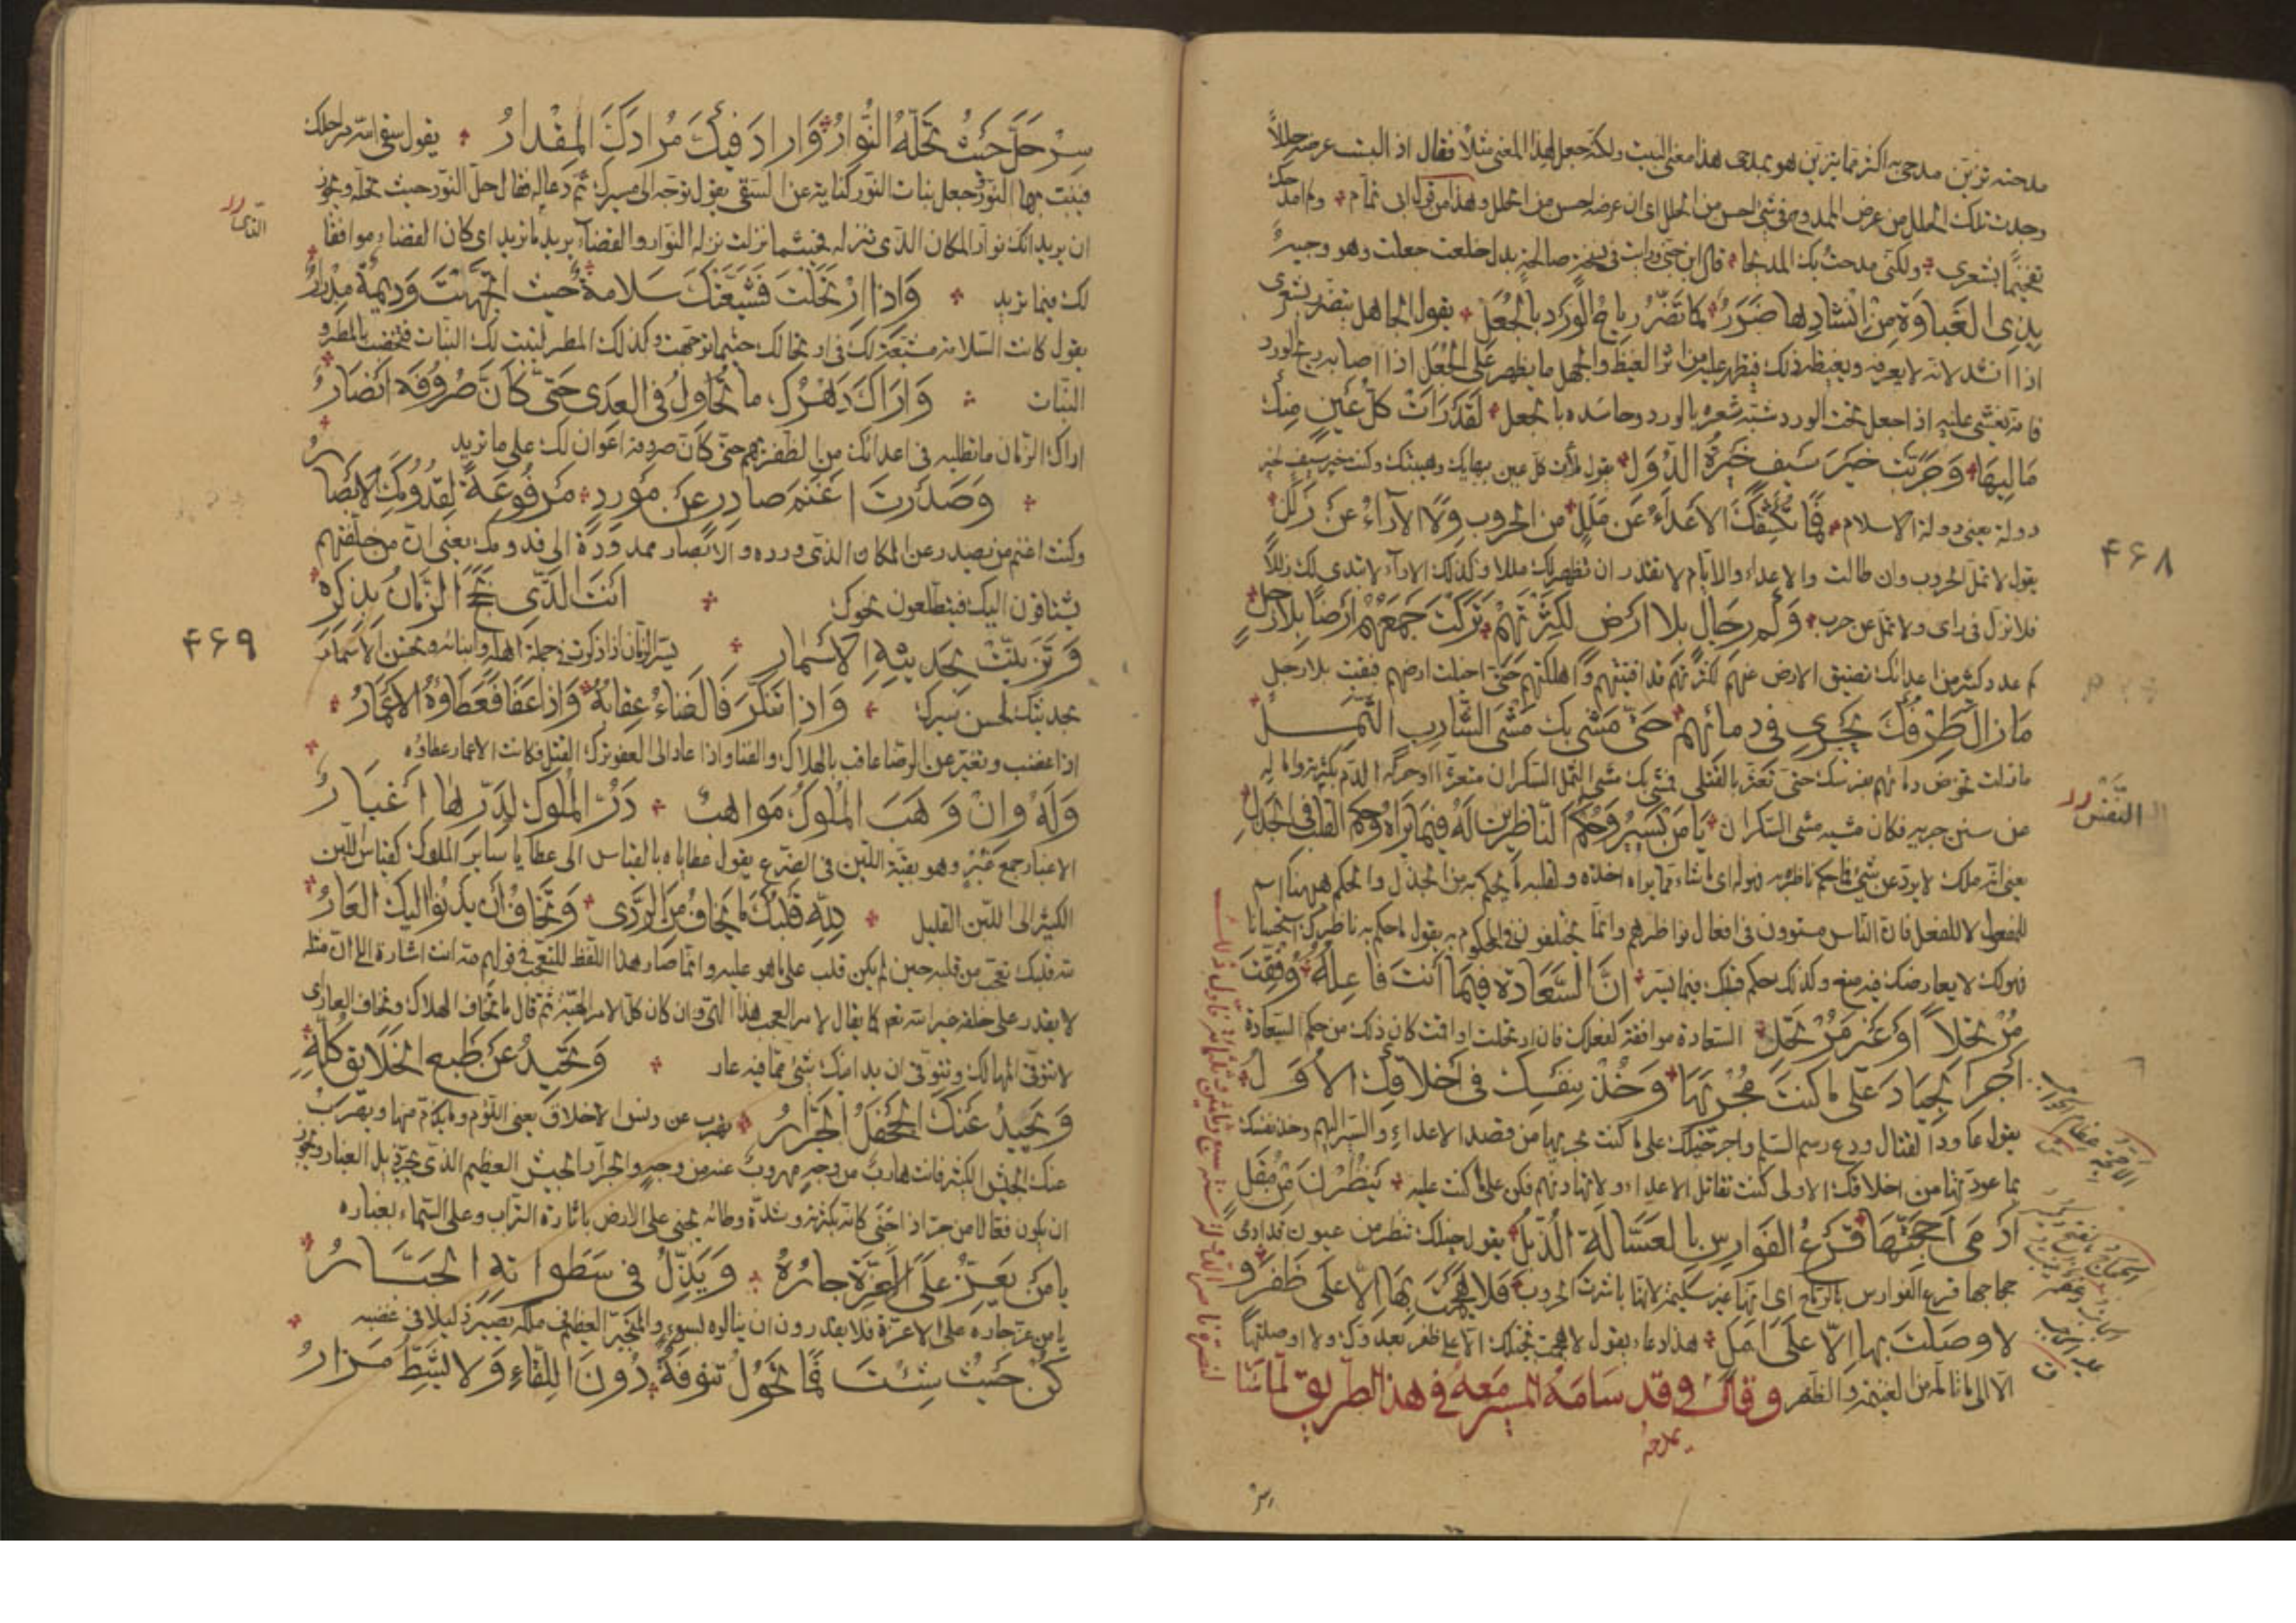 مدحته تزين مدحى به اكثر مما يتزين هو بمدحى هذا معنى البيت ولكنه جعل لهذا المعنى مثلا فقال اذا لبست عرضه حللا
وجدت تلك الحلل من عرض الممدوح فى شئ احسن من الحلل اى ان عرضه احسن من الحلل وهذا من قول ابى تمام
تفخيما بشعرى ولكنى مدحت بك المديحا قال ابن جنى
بِذِى الغَبَاوَةِ مِنْ اِنْشَادِهَا ضَرَرٌ كَمَا تَضُرُّ رِيَاحُ الوَرْدِ بِالجُعَلِ يقول الجاهل يتضرر بشعرى
اذا انشد لانه لا يعرفه ويغيظه ذلك فيظهر عليه من اثر الغيظ والجهل ما يظهر على الجعل اذا اصابه ريح الورد
فانه يغشى عليه اذا جعل تحت الورد شبه شعره بالورد وحاسده بالجعل لَقَدْ رَأَتْ كُلُّ عَيْنٍ مِنْكَ
مَالِيَها وَجَرَّبَتْ خَيْرَ سَيْفٍ خَيْرَةُ الدُّوَلِ يقول ملأت كل عين ببهائك وهيبتك وكنت خير سيف لخير
دولة يعنى دولة الاسلام فَمَا تُكَشِّفُكَ الاَعْدَاءُ عَنْ مَلَلٍ مِنَ الحُرُوبِ وَلَا الآرَاءُ عَنْ زَلَلِ
يقول لا تمل الحروب وان طالت والاعداء والايام لا تقدر ان تظهر لك مللا وكذلك الآراء لا تبدى لك زللا
فلا تزل فى راى ولا تمل عن حرب وَكَمْ رِجَالٍ بِلَا اَرْضٍ لِكَثْرَتِهِمْ تَرَكْتَ جَمْعَهُمْ اَرْضًا بِلَا رَجُلٍ
كم عدد كثير من اعدائك تضيق الارض عنهم لكثرتهم قد افنيتهم واهلكتهم حتى اخليت ارضهم فبقيت بلا رجل
مَازَالَ طِرْفُكَ يَجْرِى فِى دِمَائِهِمْ حَتَّى مَشَى بِكَ مَشْىَ الشَّارِبِ الثَّمِلِ
مازلت تخوض دماءهم بفرسك حتى تعثر بالقتلى فمشى بك مشى الثمل السكران متعثرا
عن سنن جريه فكان مشيه مشى السكران يَا مَنْ يَسِيرُ وَحُكْمُ النَّاظِرَيْنِ لَهُ فِيمَا يَرَاهُ وَحُكْمُ القَلْبِ فِى الجَذَلِ
يعنى انه ملك لا يرد عن شئ فاحكم ناظريه فهو له اى ما شاء مما يراه اخذه ولقلبه ما يحكم به من الجذل والحكم ههنا اسم
للمفعول لا للفعل فان الناس مستوون فى افعال نواظرهم وانما يختلفون فى المحكوم به يقول ما حكم به ناظرك استحسانا
فهو لك لا يعارضك فيه منع وكذلك حكم قلبك فيما يسر اِنَّ السَّعَادَةَ فِيمَا اَنْتَ فَاعِلُهُ وُفِّقْتَ
مُرْتَحِلاً اَوْ غَيْرَ مُرْتَحِلِ السعادة موافقة لفعلك فان ارتحلت او اقمت كان ذلك من حكم السعادة
اَجْرِ الجِيَادَ عَلَى مَا كُنْتَ مُجْرِيَهَا وَخُذْ بِنَفْسِكَ فِى اَخْلَاقِكَ الاُوَلِ
يقول عاود القتال ودع رسم السلم واجر خيلك على ما كنت تجريها من قصد الاعداء والسير اليهم وخذ نفسك
بما عودتها من اخلاقك الاولى كنت تقاتل الاعداء ولا تهادنهم فكن على ما كنت عليه يَنْظُرْنَ مِنْ مُقَلٍ
اَدْمَى اَحِجَّتَهَا قَرْعُ الفَوَارِسِ بِالعَسَّالَةِ الذُّبُلِ يقول خيلك تنظر من عيون قد ادمى
حجاجها قرع الفوارس بالرماح اى انها غير سليمة لانها باشرت الحروب فَلَا هَجَمْتَ بِهَا اِلَّا عَلَى ظَفَرٍ وَ
لَا وَصَلْتَ بِهَا اِلَّا عَلَى اَمَلِ هذا دعاء يقول لا هجمت بخيلك الا على ظفر بعدوك ولا اوصلتها
الا الى ما تأمله من الغنيمة والظفر وقال وقد سامه المسير معه فى هذا الطريق
يمدحه
النفس
۴۶۸
سِرْ
سِرْ حَلَّ حَيْثُ تَحُلُّهُ النُّوَّارُ وَاَرَادَ فِيكَ مُرَادَكَ المِقْدَارُ يقول سقى الله مراحلك
فينبت بها النور جعل نبات النور كناية عن السقى يقول توجه الى مسيرك ثم دعا له فقال حل النور حيث تحله ويجوز
ان يريد انك نوار المكان الذى تنزله فحيثما نزلت نزله النوار والقضاء يريد ما تريد اى كان القضاء موافقا
لك فيما تريد وَاِذَا ارْتَحَلْتَ فَشَيَّعَتْكَ سَلَامَةٌ حَيْثُ اتَّجَهْتَ وَدِيمَةٌ مِدْرَارُ
يقول كانت السلامة مشيعة لك فى ارتحالك حيثما توجهت وكذلك المطر لينبت لك النبات فتخصب بالمطر و
النبات وَاَرَاكَ دَهْرُكَ مَا تُحَاوِلُ فِى العِدَى حَتَّى كَاَنَّ صُرُوفَهُ اَنْصَارُ
اراك الزمان ما تطلبه فى اعدائك من الظفر بهم حتى كان صروفه اعوان لك على ما تريد
وَصَدَرْتَ اَغْنَمَ صَادِرٍ عَنْ مَوْرِدٍ مَرْفُوعَةً لِقُدُومِكَ الاَبْصَارُ
وكنت اغنم من يصدر عن المكان الذى ورده والابصار ممدودة الى قدومك يعنى ان من خلفتهم
يشتاقون اليك فيتطلعون نحوك اَنْتَ الَّذِى بَجِحَ الزَّمَانُ بِذِكْرِهِ
وَتَزَيَّنَتْ بِحَدِيثِهِ الاَسْمَارُ يسر الزمان اذا ذكرت فى جملة اهله وابنائه وتحسن الاسمار
بحديثك لحسن سيرك وَاِذَا تَنَكَّرَ فَالفَنَاءُ عِقَابُهُ وَاِذَا عَفَا فَعَطَاؤُهُ الاَعْمَارُ
اذا غضب وتغير عن الرضا عاقب بالهلاك والفنا واذا عاد الى العفو ترك القتل فكانت الاعمار عطاؤه
وَلَهُ وَاِنْ وَهَبَ المُلُوكُ مَوَاهِبٌ دَرُّ المُلُوكِ لِدَرِّهَا اَغْبَارُ
الاغبار جمع غبر وهو بقية اللبن فى الضرع يقول عطاياه بالقياس الى عطايا ساير الملوك كقياس اللبن
الكثير الى اللبن القليل لِلّٰهِ قَلْبُكَ مَا يَخَافُ مِنَ الرَّدَى وَتَخَافُ اَنْ يَدْنُوَ اِلَيْكَ العَارُ
لله قلبك تعجب من قلبه حين لم يكن قلب على ما هو عليه وانما صار هذا اللفظ للتعجب فى قولهم لله انت اشارة الى ان مثله
لا يقدر على خلقه غير الله
لا تتوقى المهالك وتتوقى ان بدا منك شئ مما فيه عار وَتَحِيدُ عَنْ طَبَعِ الخَلَائِقِ كُلِّهِ
وَيَحِيدُ عَنْكَ الجَحْفَلُ الجَرَّارُ تهرب عن دنس الاخلاق يعنى اللؤم وما يذم منها ويهرب
عنك الجيش الكثير فانت هارب من وجه مهروب عنه من وجه والجرار الجيش العظيم الذى يجر ذيل الغبار ويجوز
ان يكون فعالا من جر اذا جنى كانه بكثرته وشدة وطائه يجنى على الارض باثارة التراب وعلى السماء بغباره
يَا مَنْ يَعِزُّ عَلَى الاَعِزَّةِ جَارُهُ وَيَذِلُّ فِى سَطَوَاتِهِ الجَبَّارُ
يا من عز جاره على الاعزة فلا يقدرون ان ينالوه بسوء والمتجبر العظيم فى ملكه يصير ذليلا فى غضبه
كُنْ حَيْثُ شِئْتَ فَمَا تَحُولُ تَنُوفَةٌ دُونَ اللِّقَاءِ وَلَا يَشِطُّ مَزَارُ
۴۶۹